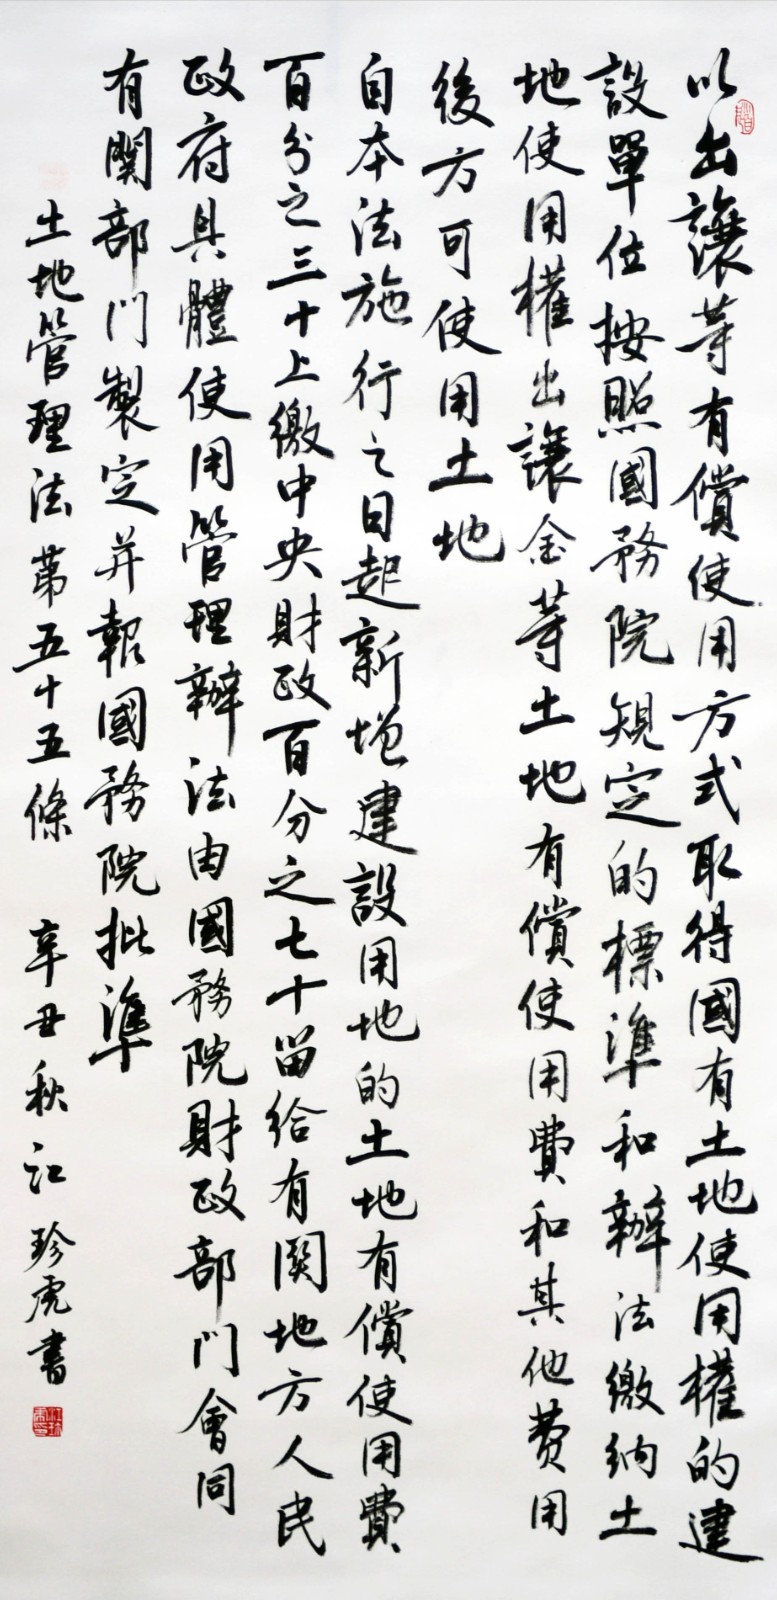 以出讓等有償使用方式取得國有土地使用權的建
設單位按照國務院規定的標準和辦法繳納土
地使用權出讓金等土地有償使用費和其他費用
後方可使用土地
自本法施行之日起新增建設用地的土地有償使用費
百分之三十上繳中央財政百分之七十留給有關地方人民
政府具體使用管理辦法由國務院財政部門會同
有關部門製定并報國務院批準
土地管理法第五十五條 辛丑秋江珍虎書